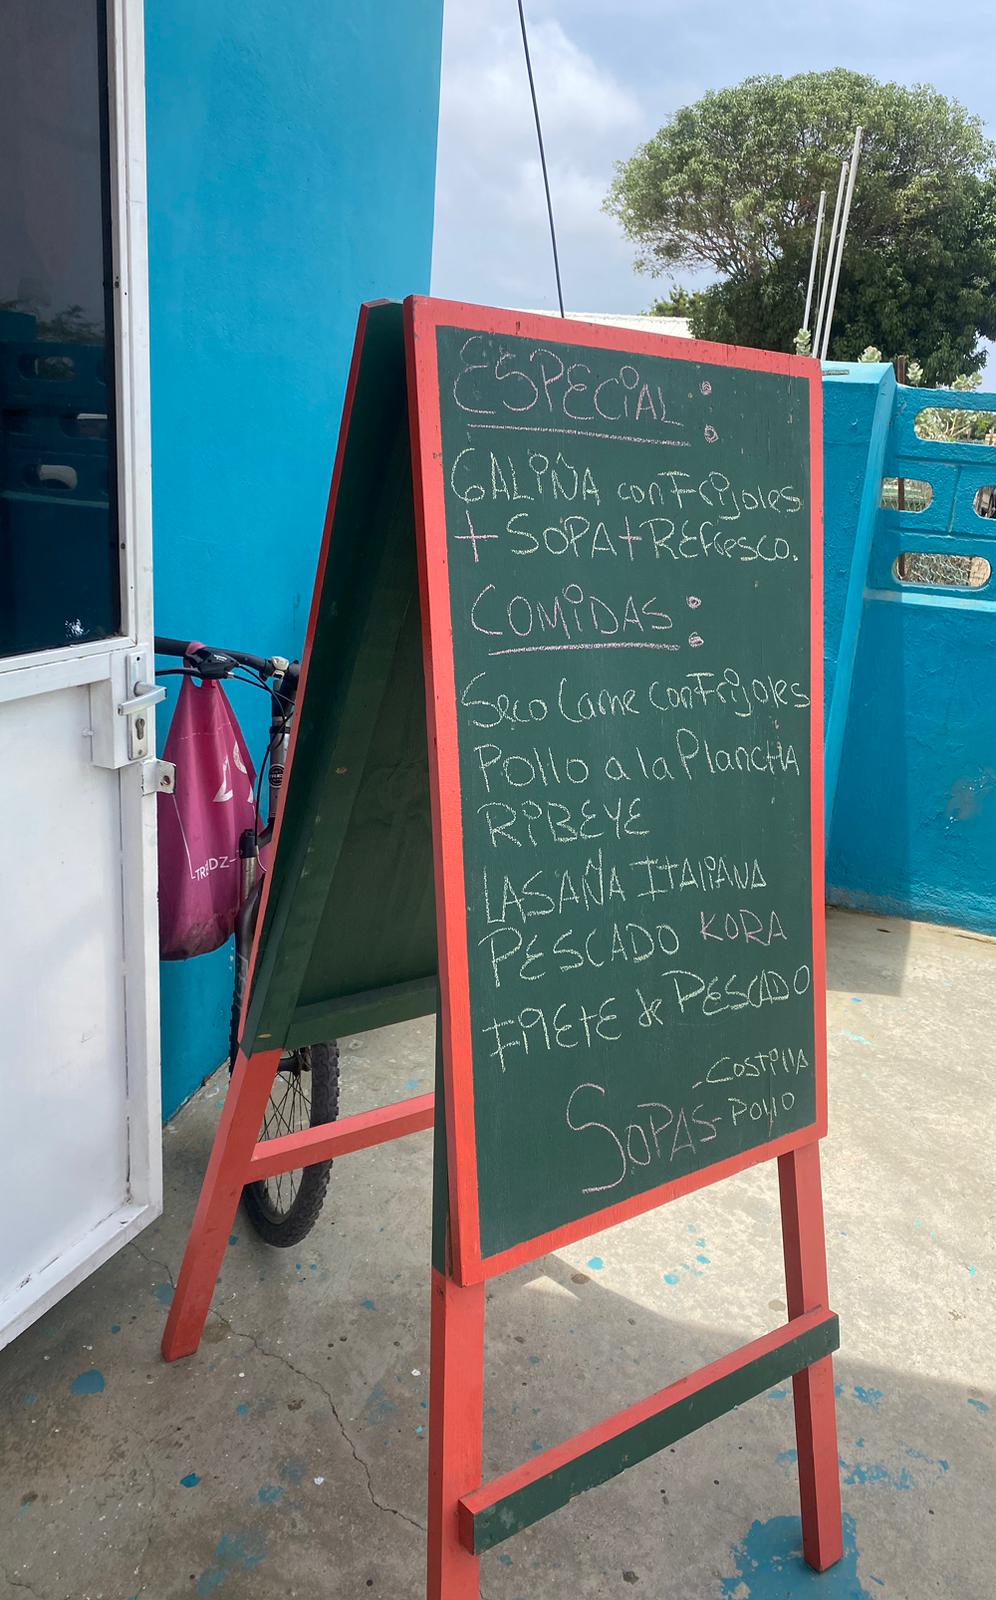 ESPECIAL :
GALIÑA con Frijoles
+ SOPA + REFRESCO.
COMIDAS :
Seco Carne con Frijoles
Pollo a la PlancHA
RIBEYE
LASAÑA ITALIANA
PESCADO KORA
FILETE de PESCADO
SOPAS - COSTILLA
- POLLO